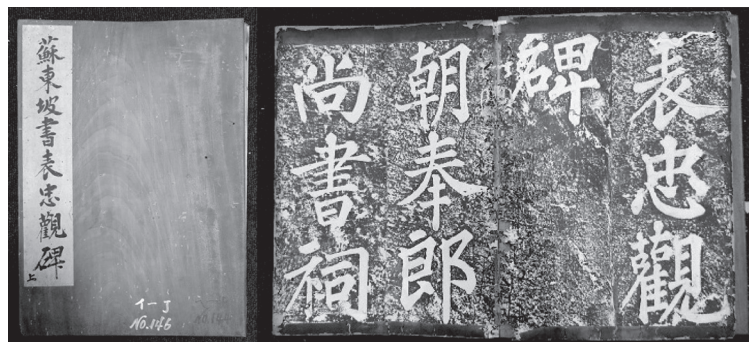 蘇東坡書表忠觀碑上
イ一J
No.146
表忠觀
碑
朝奉郎
尚書祠